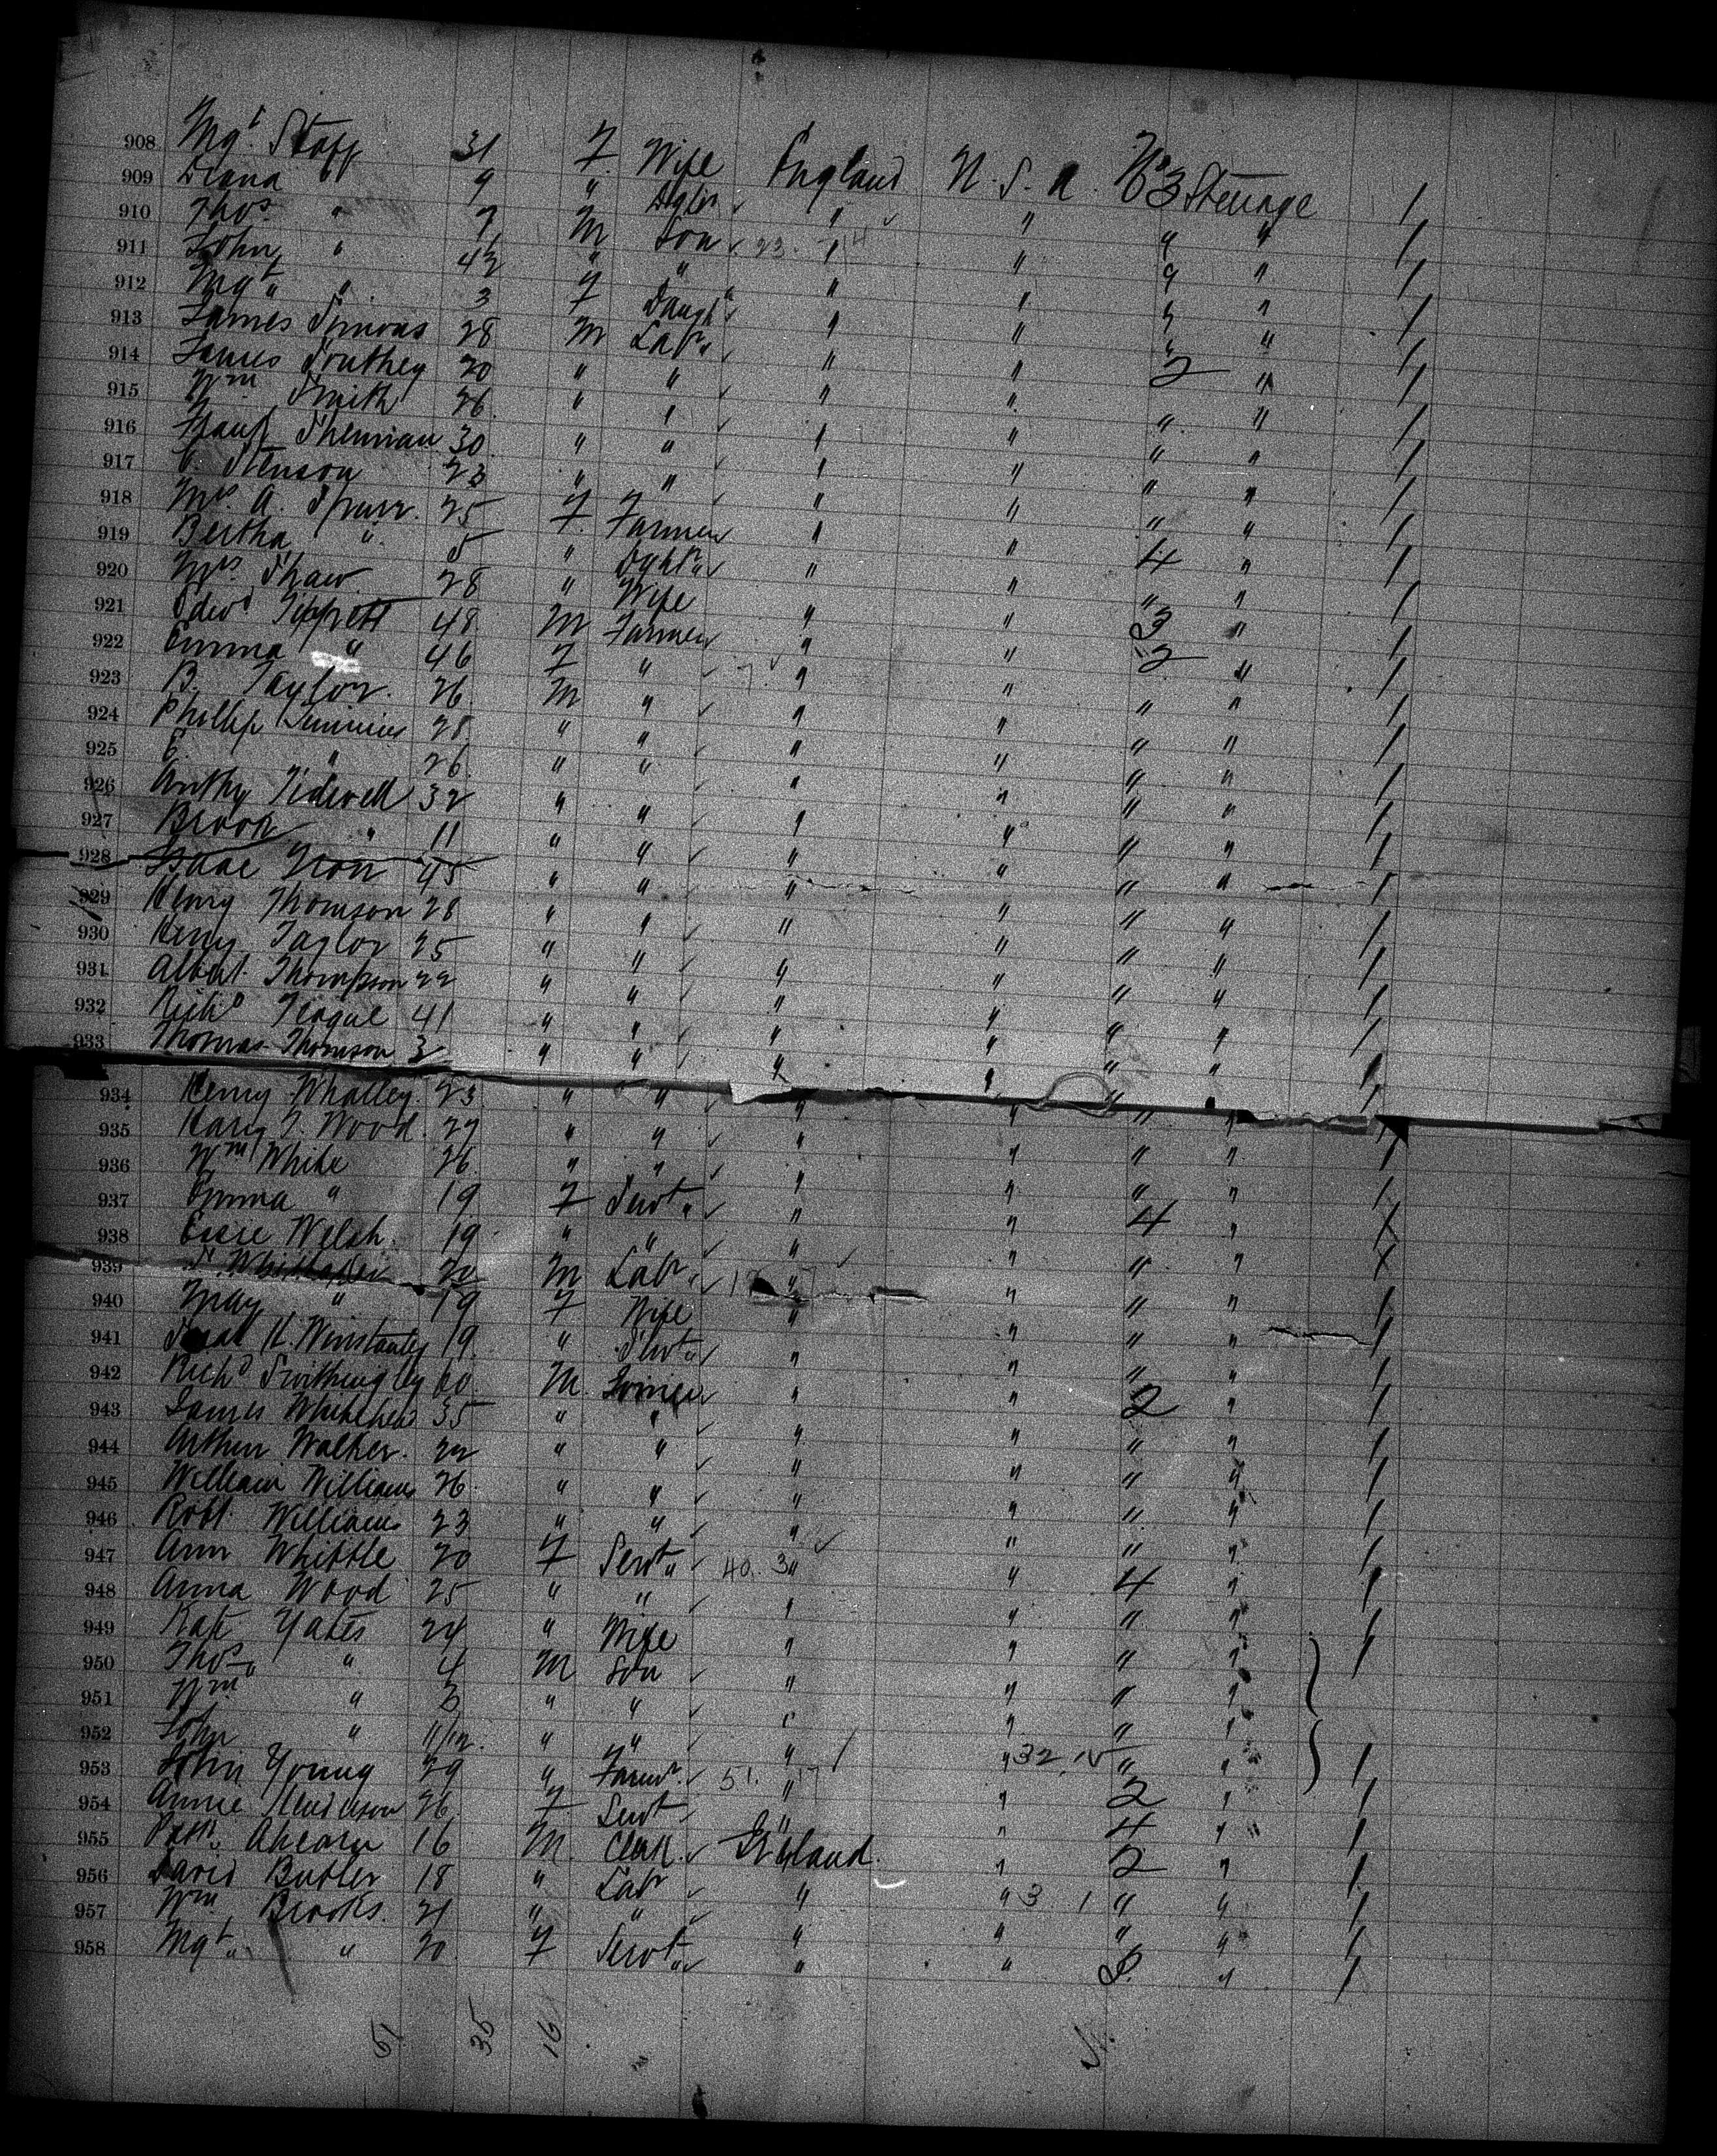 908 Mgt. Stapp 31 F Wife England U.S.A. No 3 Steerage /
909 Diana " 9 " Dghtr " " " " /
910 Thos. " 7 M Son " " " " /
911 John " 4½ " " " " " " /
912 Mgt " 3 F Daugh " " " " /
913 James Simons 28 M Labr " " " " /
914 James Southey 20 " " " " 2 " /
915 Wm Smith 26 " " " " " " /
916 Frank Sherman 30 " " " " " " /
917 C. Stenson 23 " " " " " " /
918 Mrs. A. Spurr. 25 F Farmer " " " " /
919 Bertha " 5 " Dght " " 4 " /
920 Mrs. Shaw 28 " Wife " " " " /
921 Edwd Tippett 48 M Farmer " " 3 " /
922 Emma " 46 F " " " 2 " /
923 B. Taylor. 26 M " " " " " /
924 Phillip 28 " " " " " " /
925 E " 26 " " " " " " /
926 Anthy Tidwell 32 " " " " " " /
927 " 11 " " " " " " /
928 Isaac 45 " " " " " " /
929 Henry Thomson 28 " " " " " " /
930 Henry Taylor 25 " " " " " " /
931 Albert Thompson 22 " " " " " " /
932 Richd Teague 41 " " " " " " /
933 Thomas Thomson 3 " " " " " " /
934 Henry Whalley. 23 " " " " " " /
935 Harry T. Wood. 27 " " " " " " /
936 Wm White 26 " " " " " " /
937 Emma " 19 F Servt. " " 4 " /
938 Welsh. 19 " " " " " " /
939 Whittaker 20 M Labr. " " " " /
940 May " 19 F Wife " " " " /
941 H. Winstanley 19. " Servt. " " " " /
942 Richd 60. M. Joiner " " 2 " /
943 James Whitehead 35 " " " " " " /
944 Arthur Walker. 22 " " " " " " /
945 William Williams 26. " " " " " " /
946 Robt. Williams 23 " " " " " " /
947 Ann Whittle 20 F Servt. 40. 3 " " 4 " /
948 Anna Wood 25 " " " " " " /
949 Kate Yates 24 " Wife " " " " /
950 Thos. " 4 M Son " " " "
951 Wm " 3 " " " " " "
952 John " 11/12. " " " " " " /
953 John Young 29 " Farmr. 51. 17 " " 32. 2 " /
954 Annie Henderson 26 F Servt " " 4 " /
955 Patk. Ahearn 16 M. Clerk. " 2 " /
956 David Butler 18 " Labr " " 3 1 " " /
957 Wm. Brooks. 21 " " " " " " /
958 Mgt. " 20. F Servt. " " " /
51 35 16